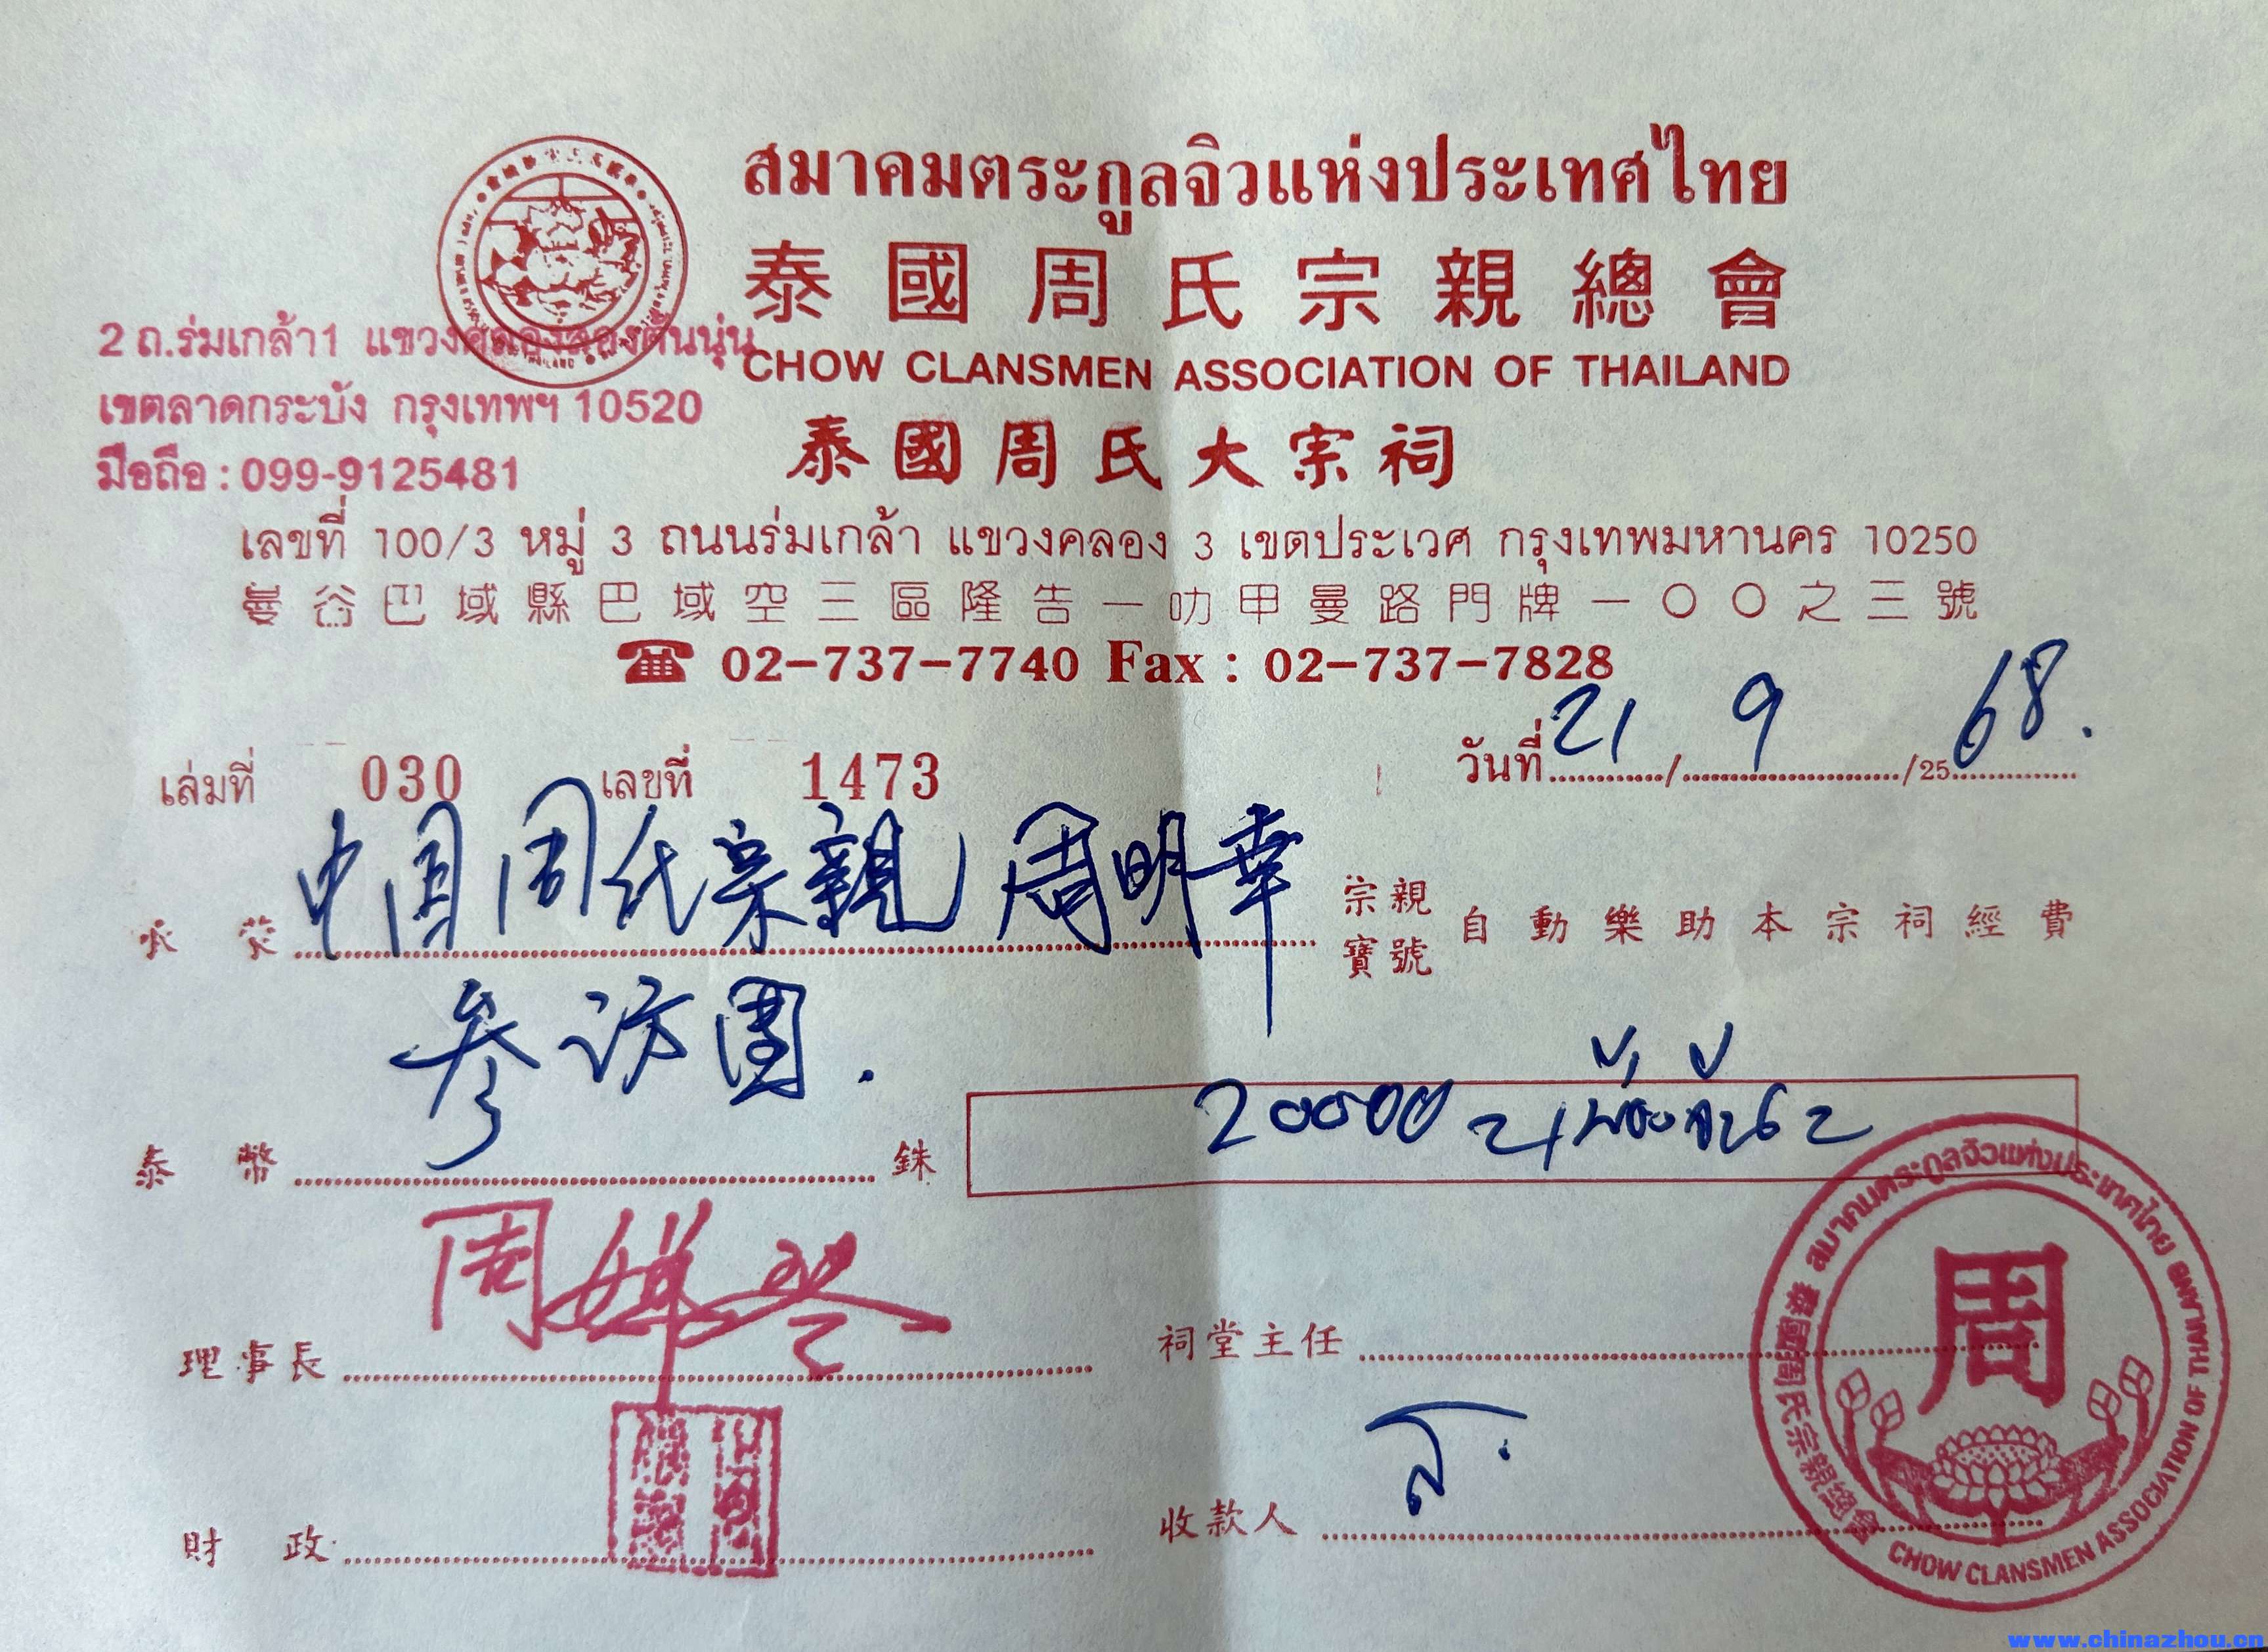 สมาคมตระกูลจิวแห่งประเทศไทย
泰國周氏宗親總會
CHOW CLANSMEN ASSOCIATION OF THAILAND
泰國周氏大宗祠
2 ถ.ร่มเกล้า1 แขวงคลองสองต้นนุ่น
เขตลาดกระบัง กรุงเทพฯ 10520
มือถือ : 099-9125481
เลขที่ 100/3 หมู่ 3 ถนนร่มเกล้า แขวงคลอง 3 เขตประเวศ กรุงเทพมหานคร 10250
曼谷巴域縣巴域空三區隆告一叻甲曼路門牌一〇〇之三號
☎ 02-737-7740 Fax : 02-737-7828
วันที่ 21 / 9 / 25 68.
เล่มที่ 030 เลขที่ 1473
承蒙 中国周氏宗親 周明幸 宗親寶號 自動樂助本宗祠經費
参访团.
泰幣 銖 20000
周
理事長 祠堂主任
財政 收款人
สมาคมตระกูลจิวแห่งประเทศไทย
周
泰國周氏宗親總會
CHOW CLANSMEN ASSOCIATION OF THAILAND
www.chinazhou.cn